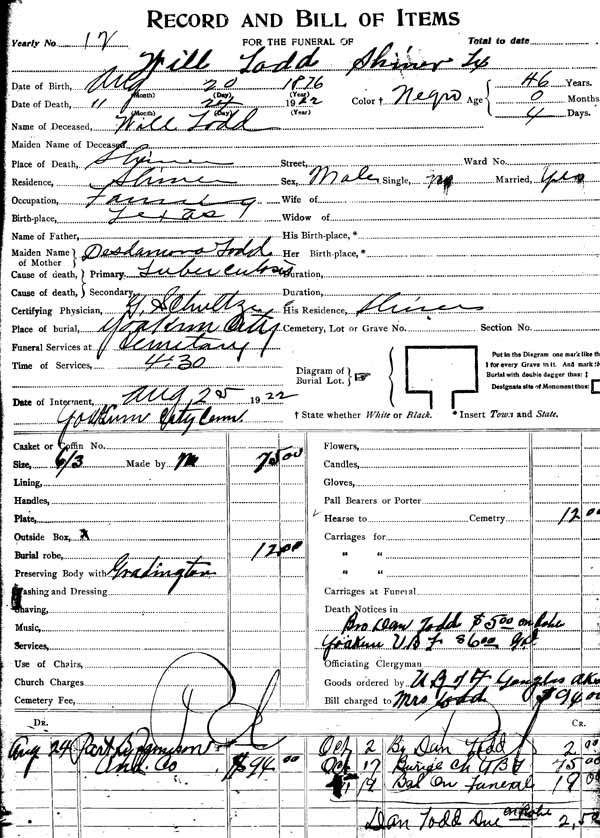 RECORD AND BILL OF ITEMS
Yearly No. 12 FOR THE FUNERAL OF Total to date
Will Todd Shiner Tx
Date of Birth, Aug 20 1876
(Month) (Day) (Year)
Date of Death, " 24 1922 Color † Negro Age 46 Years. 0 Months 4 Days.
(Month) (Day) (Year)
Name of Deceased, Will Todd
Maiden Name of Deceased,
Place of Death, Shiner Street, Ward No.
Residence, Shiner Sex, Male Single, no Married, Yes
Occupation, Farming Wife of
Birth-place, Texas Widow of
Name of Father, His Birth-place,*
Maiden Name of Mother Desdamona Todd Her Birth-place,*
Cause of death, Primary Tuberculosis Duration,
Cause of death, Secondary Duration,
Certifying Physician, G. Schultze His Residence, Shiner
Place of burial, Yoakum City Cemetery, Lot or Grave No. Section No.
Funeral Services at Cemetary
Time of Services, 4:30
Diagram of Burial Lot.
Put in the Diagram one mark like th
I for every Grave in it. And mark th
Burial with double dagger thus: ‡
Designate site of Monument thus:
Date of Interment, Aug 25 1922
† State whether White or Black. * Insert Town and State.
Yoakum City Cem.
Casket or Coffin No.
Size, 6/3 Made by 75 00
Lining,
Handles,
Plate,
Outside Box, X
Burial robe, 12 00
Preserving Body with
Washing and Dressing
Shaving,
Music,
Services,
Use of Chairs,
Church Charges
Cemetery Fee,
Flowers,
Candles,
Gloves,
Pall Bearers or Porter
Hearse to Cemetry 12 00
Carriages for
" "
" "
Carriages at Funeral
Death Notices in
Bro Dan Todd $5.00 on robe
Yoakum U B F $6.00
Officiating Clergyman
Goods ordered by U B of F
Bill charged to Mrs Todd $94.00
Pd
DR. CR.
Aug 24 And. Co $94.00
Oct 2 By Dan Todd 2.00
Oct 17 UBF 75 00
19 Bal On Funeral 19 00
Dan Todd Due on Robe 2.50